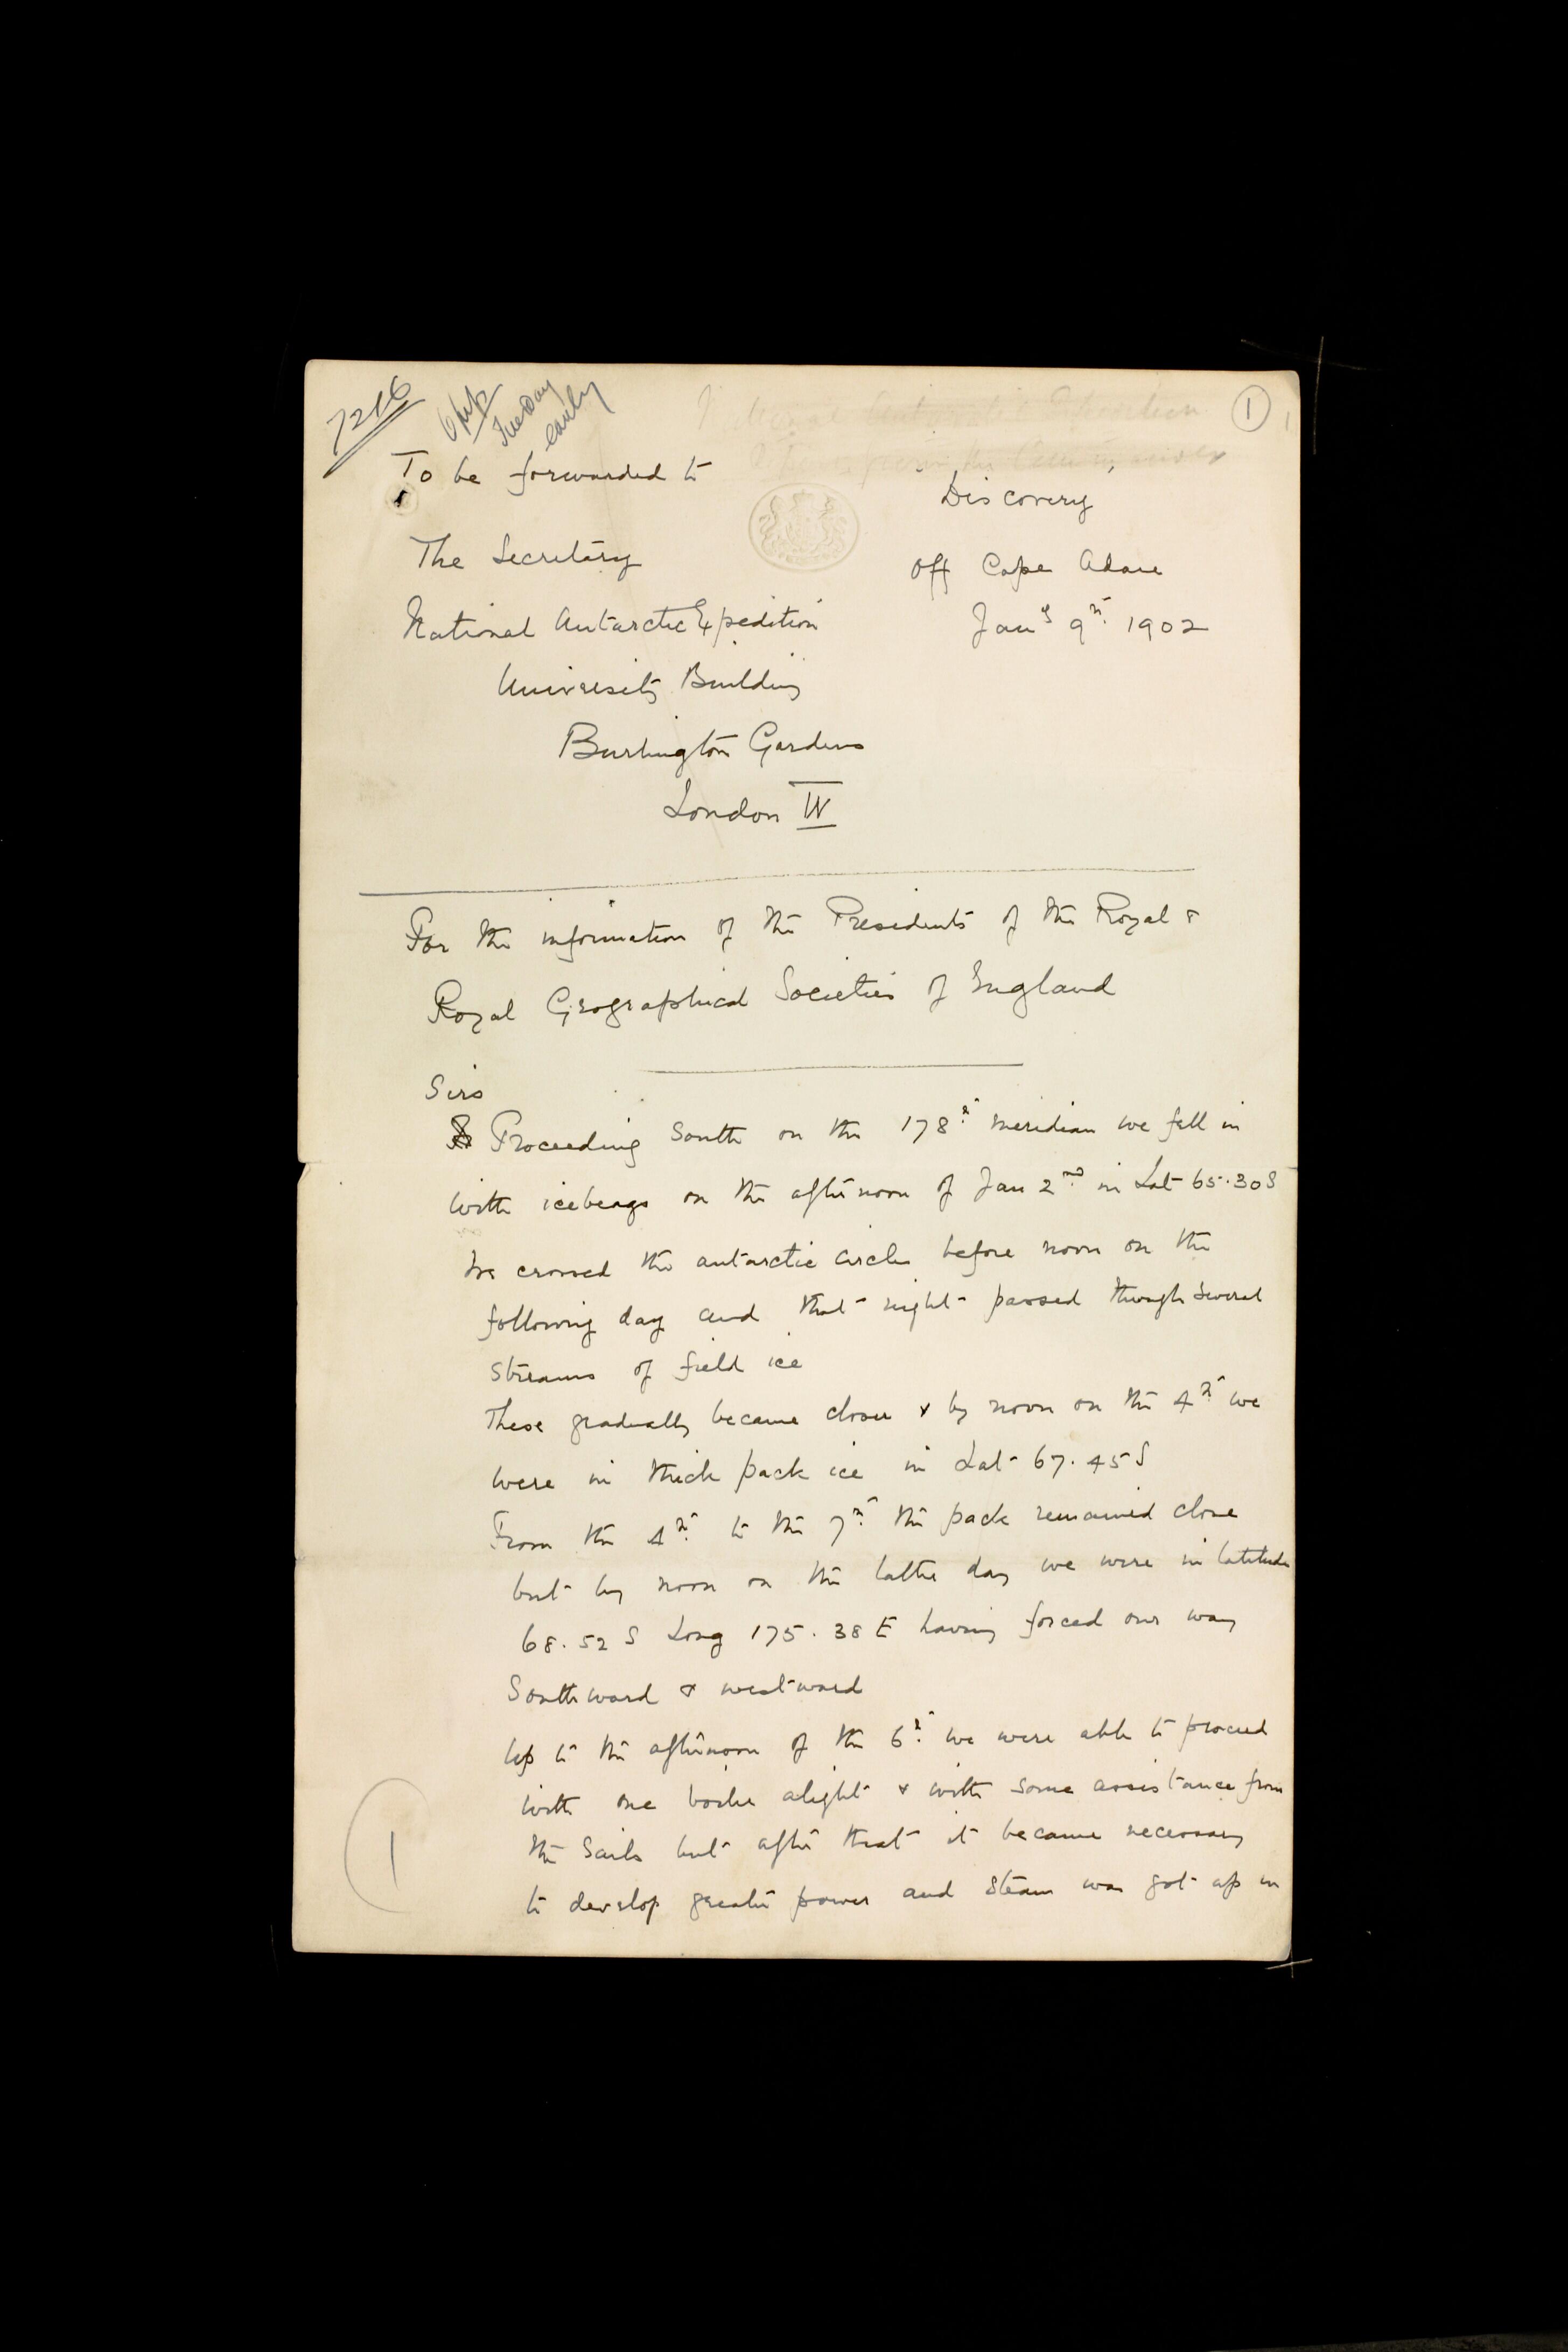 7216
Tuesday
early
1
To be forwarded to
"Discovery"
The Secretary
Off Cape Adare
National Antarctic Expedition
Jany 9th 1902
University Building
Burlington Gardens
London W
For the information of the Presidents of the Royal &
Royal Geographical Societies of England
Sirs
Proceeding South on the 178th meridian we fell in
with icebergs on the afternoon of Jan 2nd in Lat 65.30 S
We crossed the antarctic circle before noon on the
following day and that night passed through several
streams of field ice
These gradually became closer & by noon on the 4th we
were in thick pack ice in Lat 67.45 S
From the 4th to the 7th the pack remained close
but by noon on the latter day we were in latitude
68.52 S Long 175.38 E having forced our way
Southward & westward
Up to the afternoon of the 6th we were able to proceed
with one boiler alight & with some assistance from
the sails but after that it became necessary
to develop greater power and steam was got up in
1